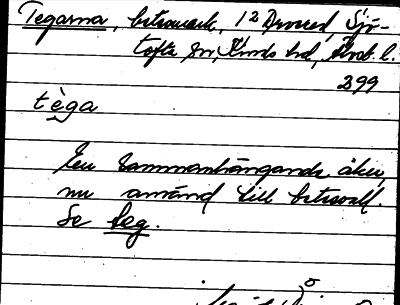 Tegarna, betesmark, 12 Draered, Sjö-
tofta sn, Kinds hd, Älvsb. l.
399
tèga
En sammanhängande åker,
nu använd till betesvall.
Se teg.